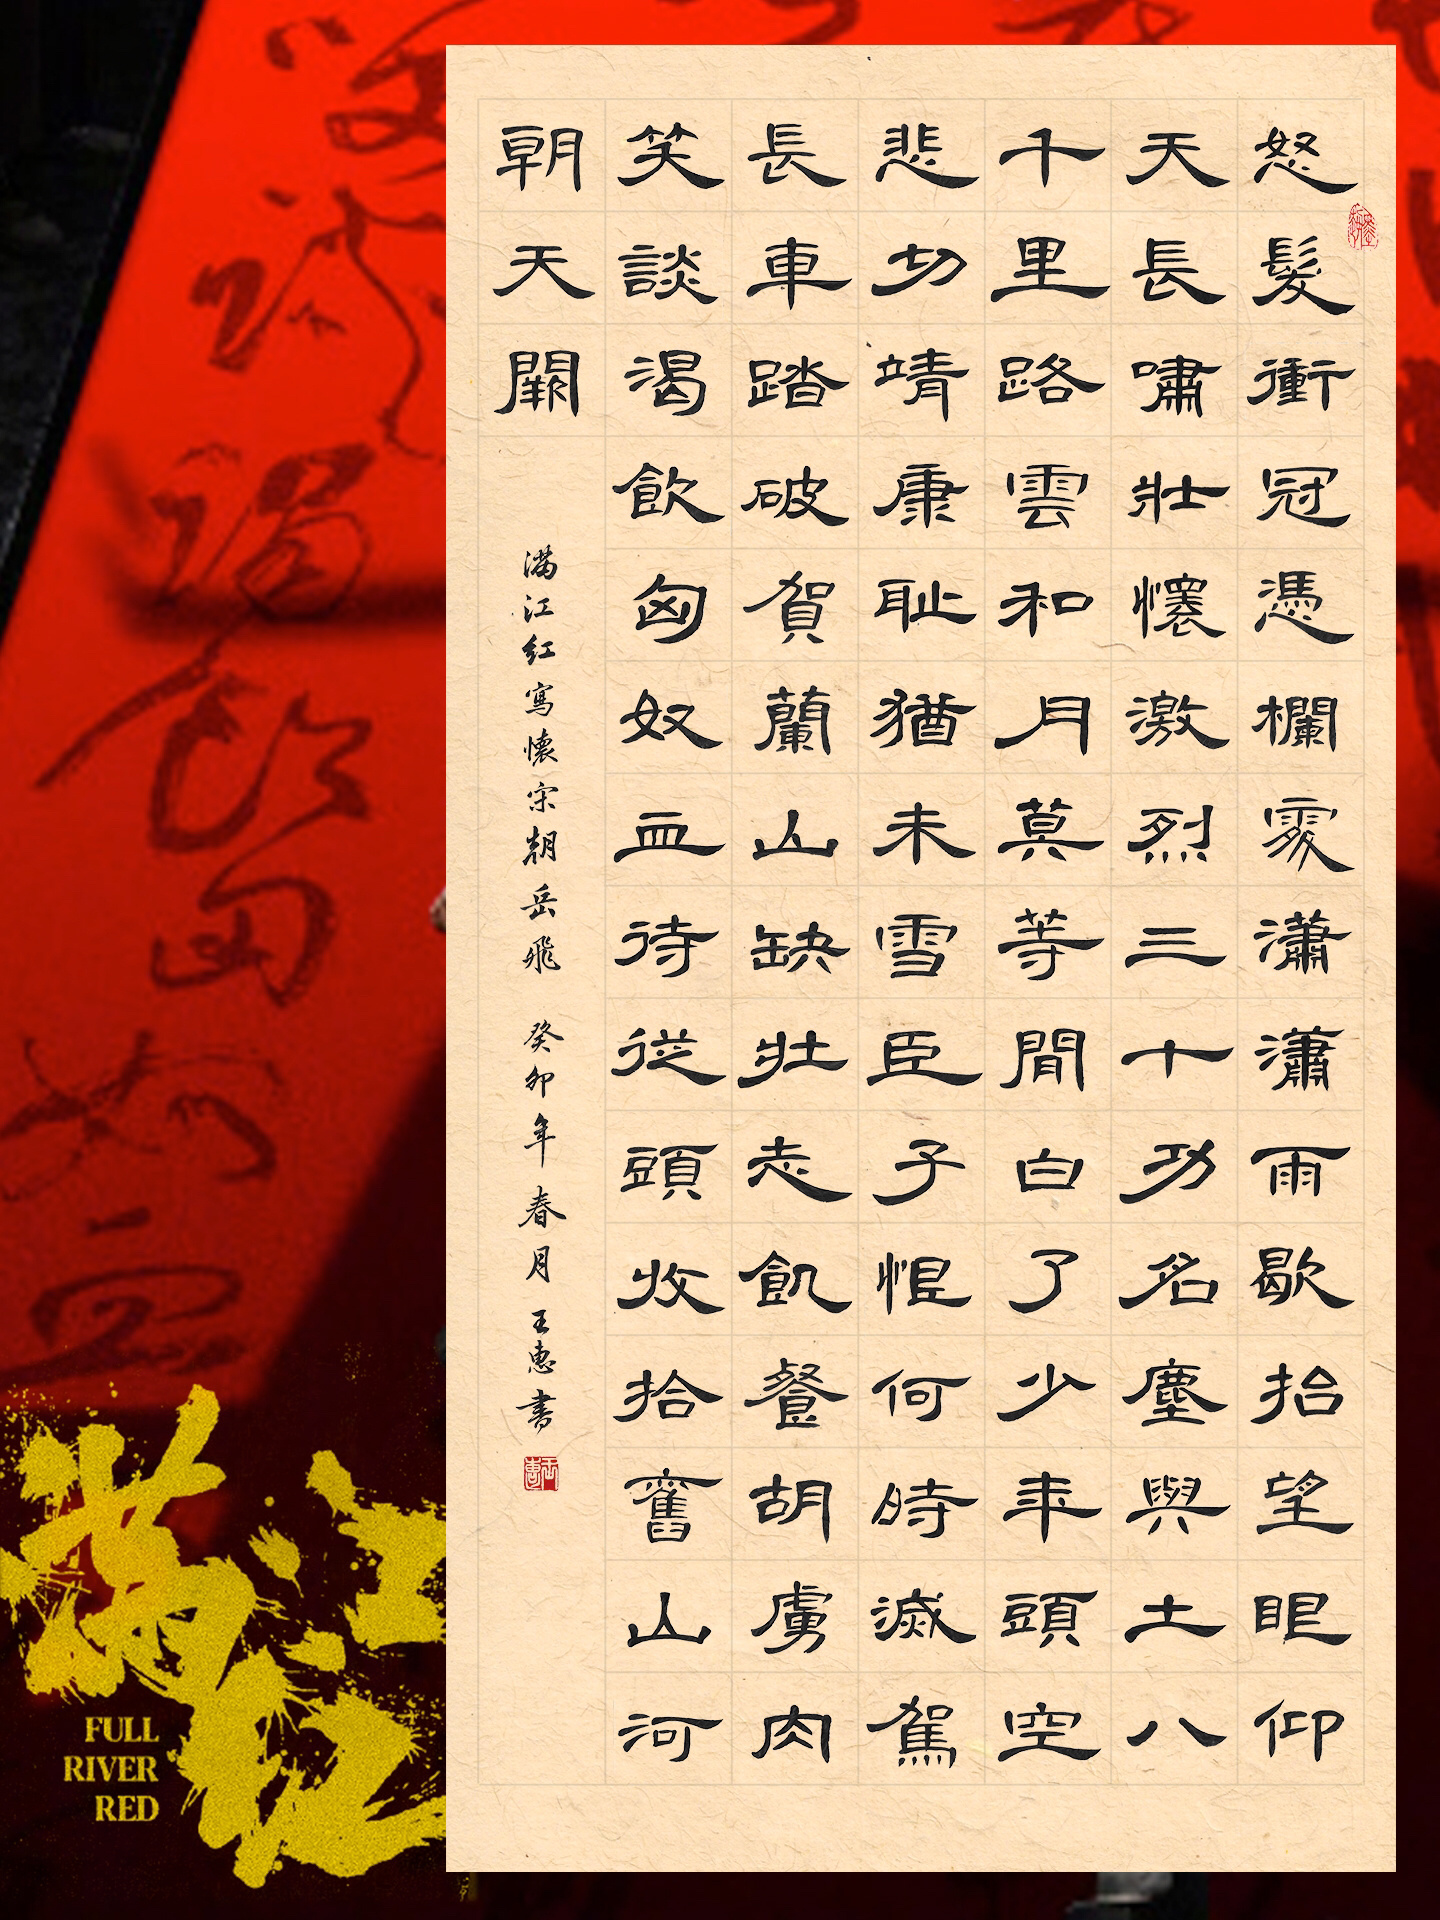 怒髮衝冠憑欄處瀟瀟雨歇抬望眼仰
天長嘯壯懷激烈三十功名塵與土八
千里路雲和月莫等閒白了少年頭空
悲切靖康恥猶未雪臣子恨何時滅駕
長車踏破賀蘭山缺壯志飢餐胡虜肉
笑談渴飲匈奴血待從頭收拾舊山河
朝天闕
滿江紅寫懷宋朝岳飛 癸卯年春月王惠書
滿江紅
FULL
RIVER
RED